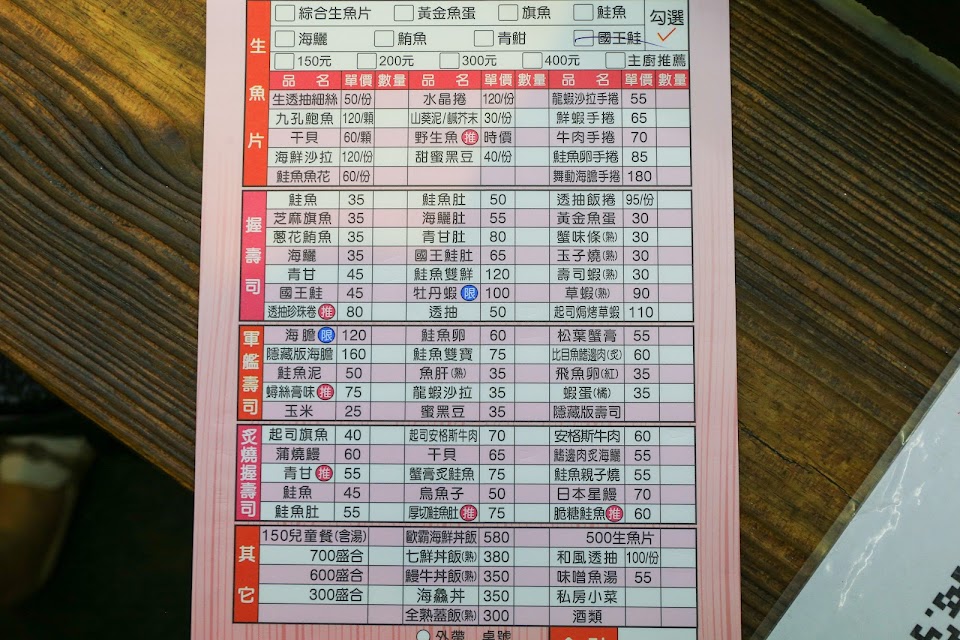 生魚片
綜合生魚片 黃金魚蛋 旗魚 鮭魚 勾選
海鱺 鮪魚 青魽 國王鮭
150元 200元 300元 400元 主廚推薦
品名 單價 數量 品名 單價 數量 品名 單價 數量
生透抽細絲 50/份 水晶捲 120/份 龍蝦沙拉手捲 55
九孔鮑魚 120/顆 山葵泥/鹹芥末 30/份 鮮蝦手捲 65
干貝 60/顆 野生魚 推 時價 牛肉手捲 70
海鮮沙拉 120/份 甜蜜黑豆 40/份 鮭魚卵手捲 85
鮭魚魚花 60/份 舞動海膽手捲 180
握壽司
鮭魚 35 鮭魚肚 50 透抽飯捲 95/份
芝麻旗魚 35 海鱺肚 55 黃金魚蛋 30
蔥花鮪魚 35 青甘肚 80 蟹味條(熟) 30
海鱺 35 國王鮭肚 65 玉子燒(熟) 30
青甘 45 鮭魚雙鮮 120 壽司蝦(熟) 30
國王鮭 45 牡丹蝦 限 100 草蝦(熟) 90
透抽珍珠卷 推 80 透抽 50 起司焗烤草蝦 110
軍艦壽司
海膽 限 120 鮭魚卵 60 松葉蟹膏 55
隱藏版海膽 160 鮭魚雙寶 75 比目魚鰭邊肉(炙) 60
鮭魚泥 50 魚肝(熟) 35 飛魚卵(紅) 35
蟳絲膏味 推 75 龍蝦沙拉 35 蝦蛋(橘) 35
玉米 25 蜜黑豆 35 隱藏版壽司
炙燒握壽司
起司旗魚 40 起司安格斯牛肉 70 安格斯牛肉 60
蒲燒鰻 60 干貝 65 鰭邊肉炙海鱺 55
青甘 推 55 蟹膏炙鮭魚 75 鮭魚親子燒 55
鮭魚 45 烏魚子 50 日本星鰻 70
鮭魚肚 55 厚切鮭魚肚 推 75 脆糖鮭魚 推 60
其它
150兒童餐(含湯) 歐霸海鮮丼飯 580 500生魚片
700盛合 七鮮丼飯(熟) 380 和風透抽 100/份
600盛合 鰻牛丼飯(熟) 350 味噌魚湯 55
300盛合 海鱻丼 350 私房小菜
全熟蓋飯(熟) 300 酒類
外帶 桌號